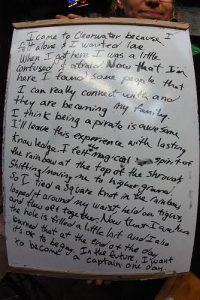 I came to Clearwater because I
felt alone & I wanted love.
When I got here I was a little
confused & afraid. Now that I'm
here I found some people that
I can really connect with and
they are becoming my family.
I think being a pirate is awesome.
I'll leave this experience with lasting
knowledge. I felt magical spirit of
the rainbow at the top of the shrouds
shifting/moving me to higher ground.
So I tied a square knot in the rainbow
looped it around my waist held on
and flew off together. Now that I am here
the hole is filled a little bit and I also
learned that at the end of the day
it's ok to be gay. In the future, I want
to become a captain one day.